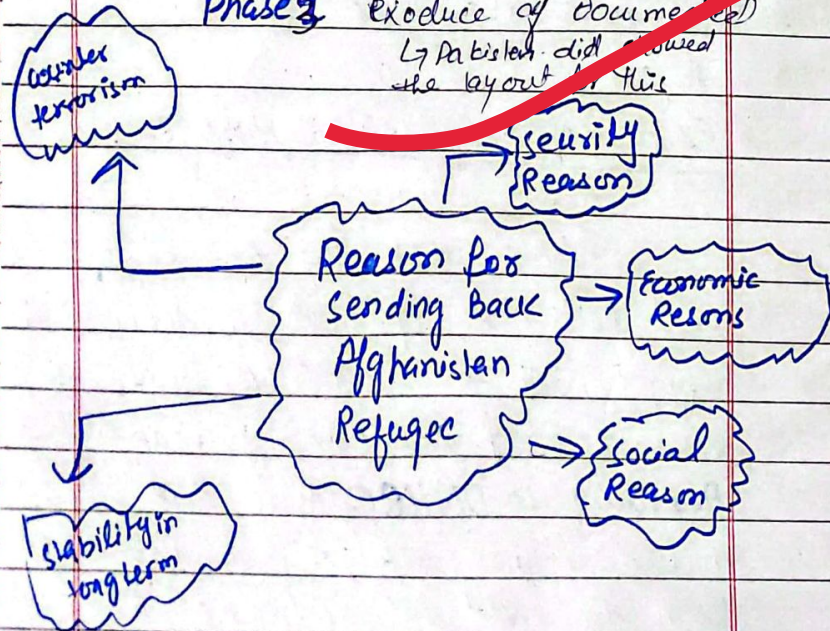 Phase 3 exoduce of Documented)
↳ Pakistan did showed
the layout for this
counter
terrorism
Seurity
Reason
Reason for
Sending Back
Afghanistan
Refugee
Economic
Resons
Social
Reason
Stability in
long term